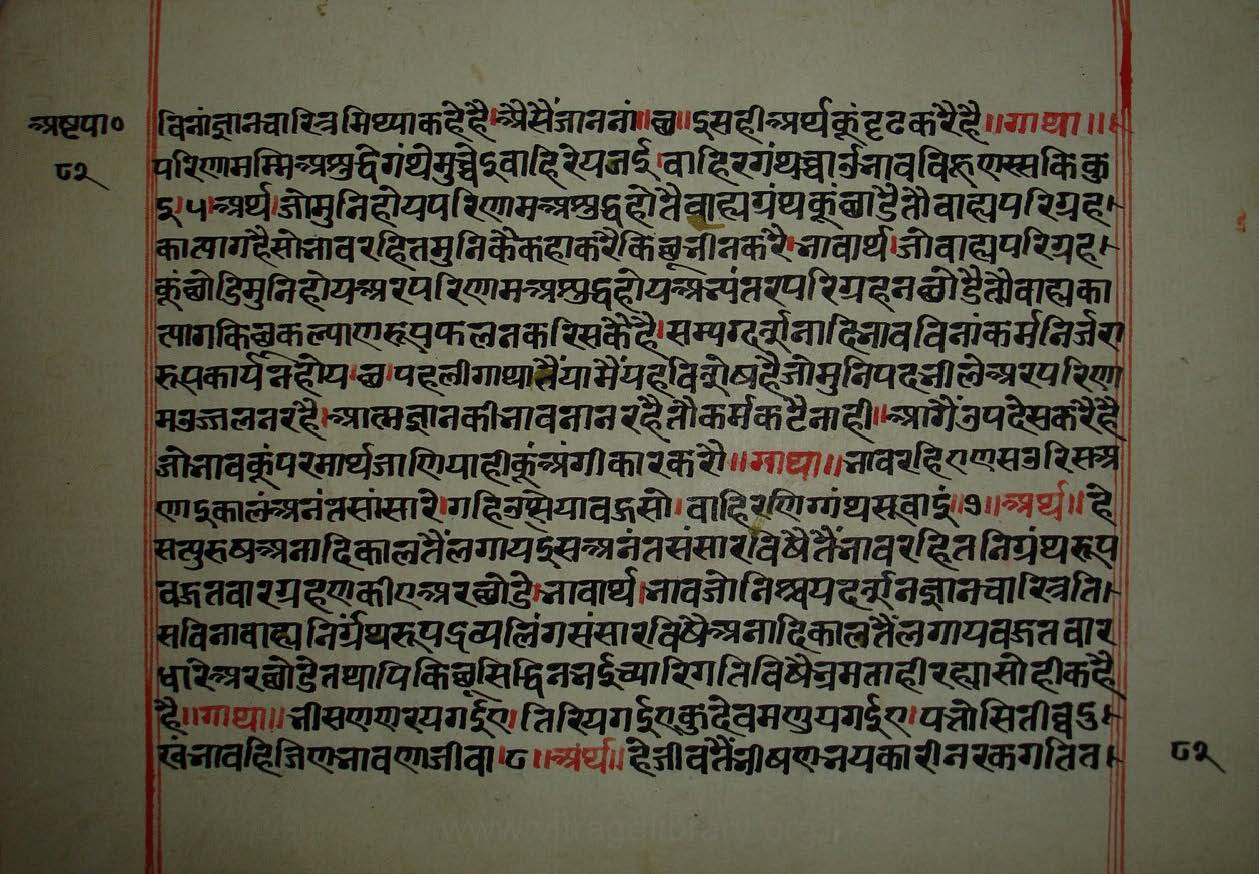 अष्टपा०
८२
विनां ज्ञानचारित्र मिथ्या कहे है। औसैं जाननां॥छ॥ इसही अर्थकूं दृढ करै है॥गाथा॥
परिणामम्मि असुद्धे गंथे मुच्चेइ वाहिरे य जई। वाहिरगंथच्चाउ भावविहूणस्स किं कु
इ।५।अर्थ।जो मुनि होय परिणाम असुद्ध होतै वाह्य ग्रंथकूं छाडै तौ वाह्य परिग्रह।
का त्याग है सो भावरहित मुनिकै कहा करै किछू भी न करै।भावार्थ।जो वाह्य परिग्रह।
कूं छोडि मुनि होय अर परिणाम असुद्ध होय अभ्यंतर परिग्रह न छोडै तौ वाह्य का
त्याग किछु कल्याणरूप फल न करि सकै है। सम्यग्दर्शनादि भाव विनां कर्मनिर्जरा
रूप कार्य न होय।छ।पहली गाथा तैं यामैं यह विशेष है जो मुनिपद भी ले अर परिणा
म उज्जल न रहै। आत्मज्ञान की भावना न रहै तौ कर्म कटै नाही॥ आगैं उपदेस करै है
जो भावकूं परमार्थ जाणि याही कूं अंगीकार करौ॥गाथा॥भावरहिएण सउरिस अ
णाइकालं अनंतसांसारे। गहिउझियाव वहुसो। वाहिरणिग्गंथसूवाइं॥७॥अर्थ॥ हे
सत्पुरुष अनादिकाल तैं लगाय इस अनंत संसारविषै तैं भावरहित निग्रंथरूप
वहुत वार ग्रहण कीए अर छोडे।भावार्थ।भाव जो निश्चय दर्शनज्ञानचारित्र ति।
स विना वाह्य निर्ग्रंथरूप द्रव्यलिंग संसारविषै अनादिकाल तैं लगाय वहुत वार
धारे अर छोडे तथापि किछू सिद्धि न भई च्यारि गति विषै भ्रमता ही रह्या सो ही कहै
है॥गाथा॥ भीसणणरयगईए। तिरियगईए कुदेवमणुयगईए। पत्तोसि तीव्वदु।
खं भावहि जिणभावणा जीवा।८॥अर्थ॥ हे जीव तैं भीषण भयकारी नरकगति त।
८२